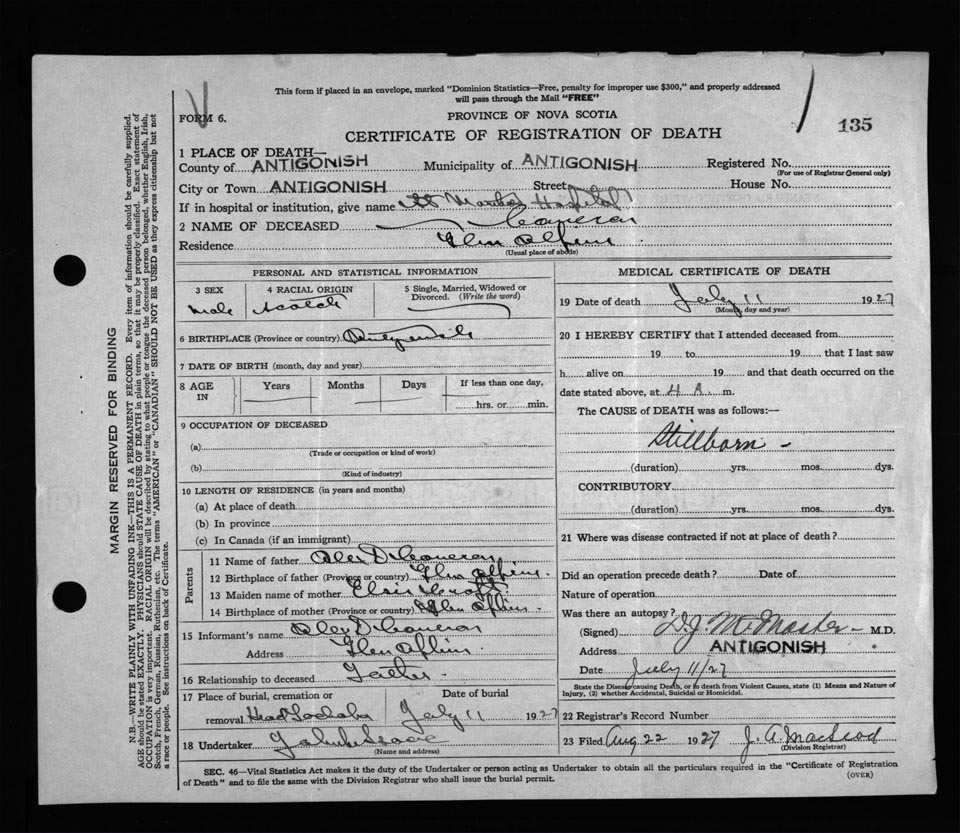 This form if placed in an envelope, marked "Dominion Statistics—Free, penalty for improper use $300," and properly addressed
will pass through the Mail "FREE"
FORM 6.
PROVINCE OF NOVA SCOTIA
CERTIFICATE OF REGISTRATION OF DEATH
135
1 PLACE OF DEATH—
County of ANTIGONISH Municipality of ANTIGONISH Registered No.
(For use of Registrar General only)
City or Town ANTIGONISH Street House No.
If in hospital or institution, give name St Marthas Hospital
2 NAME OF DECEASED Cameron
Residence Glen Alpine
(Usual place of abode)
PERSONAL AND STATISTICAL INFORMATION
3 SEX 4 RACIAL ORIGIN 5 Single, Married, Widowed or Divorced. (Write the word)
male Scotch
6 BIRTHPLACE (Province or country)
7 DATE OF BIRTH (month, day and year)
8 AGE IN Years Months Days If less than one day,
hrs. or min.
9 OCCUPATION OF DECEASED
(a)
(Trade or occupation or kind of work)
(b)
(Kind of industry)
10 LENGTH OF RESIDENCE (in years and months)
(a) At place of death
(b) In province
(c) In Canada (if an immigrant)
Parents
11 Name of father Alex D Cameron
12 Birthplace of father (Province or country) Glen Alpine
13 Maiden name of mother Elsie
14 Birthplace of mother (Province or country) Glen Alpine
15 Informant's name Alex D Cameron
Address Glen Alpine
16 Relationship to deceased Father
17 Place of burial, cremation or Date of burial
removal Head Lochaber July 11 1927
18 Undertaker
(Name and address)
MEDICAL CERTIFICATE OF DEATH
19 Date of death July 11 1927
(Month, day and year)
20 I HEREBY CERTIFY that I attended deceased from
19 to 19 that I last saw
h alive on 19 and that death occurred on the
date stated above, at 4 A. m.
The CAUSE of DEATH was as follows:—
Stillborn —
(duration) yrs. mos. dys.
CONTRIBUTORY
(duration) yrs. mos. dys.
21 Where was disease contracted if not at place of death?
Did an operation precede death? Date of
Nature of operation
Was there an autopsy?
(Signed) D.J. McMaster — M.D.
Address ANTIGONISH
Date July 11/27
State the Disease causing Death, or in death from Violent Causes, state (1) Means and Nature of
Injury, (2) whether Accidental, Suicidal or Homicidal.
22 Registrar's Record Number
23 Filed Aug 22 1927 J. A. MacLeod
(Division Registrar)
SEC. 46—Vital Statistics Act makes it the duty of the Undertaker or person acting as Undertaker to obtain all the particulars required in the "Certificate of Registration
of Death" and to file the same with the Division Registrar who shall issue the burial permit.
(OVER)
MARGIN RESERVED FOR BINDING
N.B.—WRITE PLAINLY WITH UNFADING INK—THIS IS A PERMANENT RECORD. Every item of information should be carefully supplied.
AGE should be stated EXACTLY. PHYSICIANS should STATE CAUSE OF DEATH in plain terms, so that it may be properly classified. Exact statement of
OCCUPATION is very important. RACIAL ORIGIN will be described by stating to what people or tongue the deceased person belonged, whether English, Irish,
Scotch, French, German, Russian, Ruthenian, etc. The terms "AMERICAN" or "CANADIAN" SHOULD NOT BE USED as they express citizenship but not
a race or people. See instructions on back of Certificate.